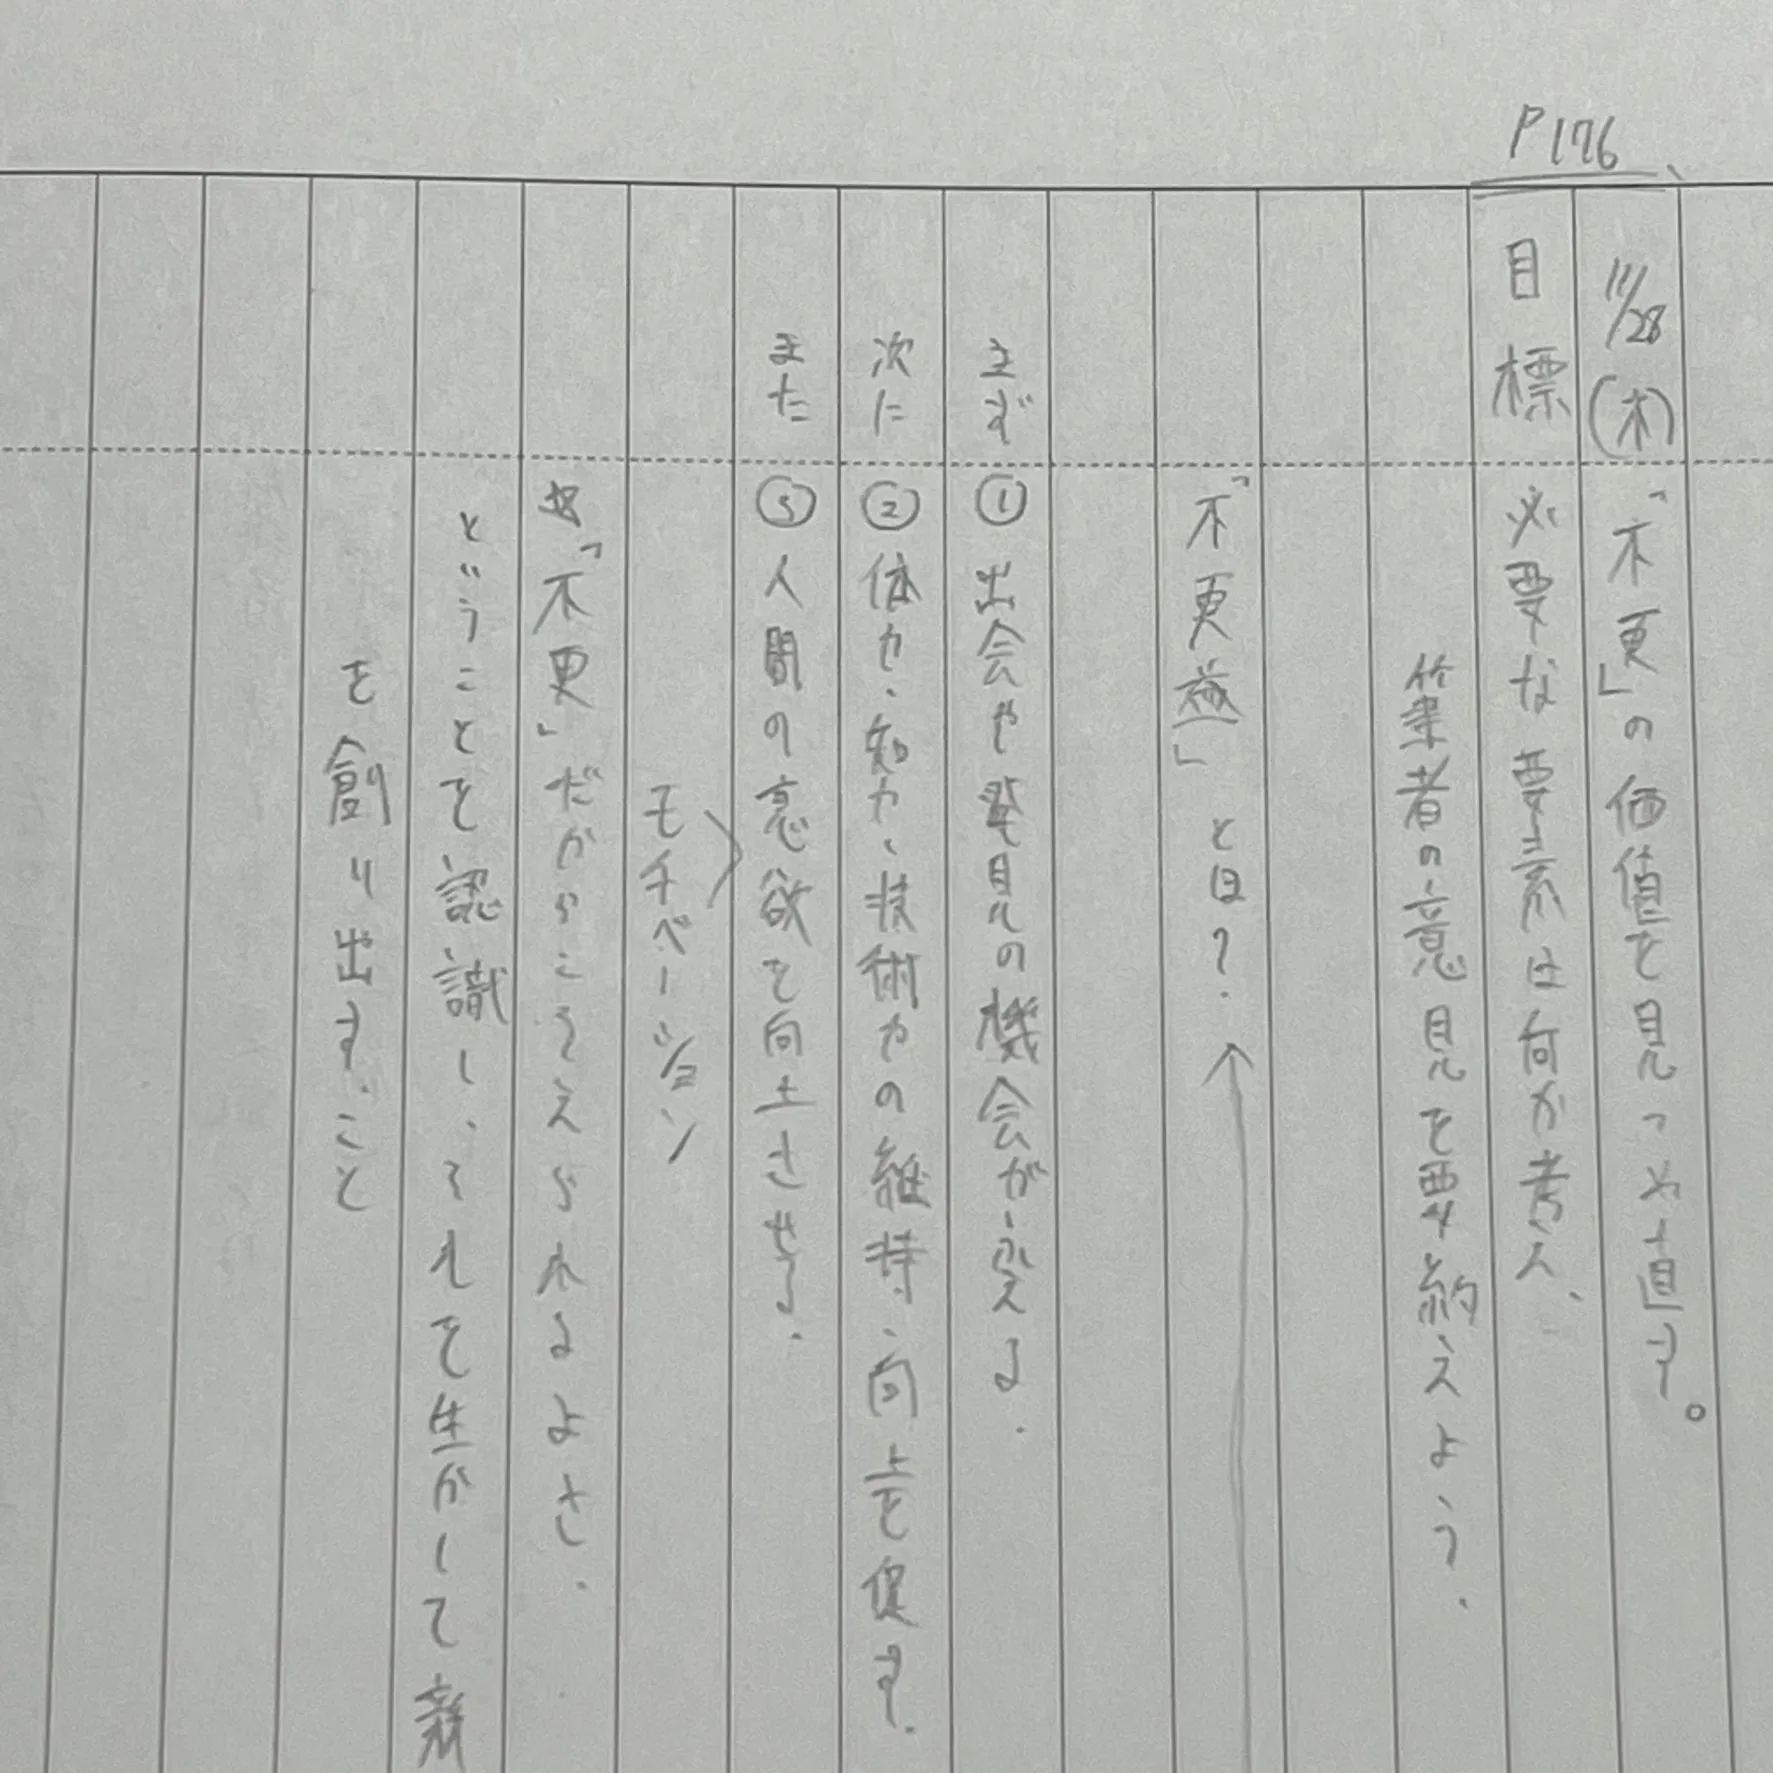 P176
11/28(木)「不更」の価値を見つめ直す。
目標 必要な要素は何か考え、
筆者の意見を要約えよう.
「不更益」とは?
まず ① 出会や発見の機会が変える.
次に ② 体力、知力、技術力の維持、向上を促す.
また ③ 人間の意欲を向上させる.
モチベーション
「不更」だからこうえられるよさ.
どうことを認識し、それを生かして
を創り出す、こと